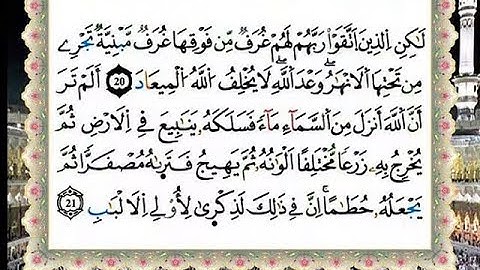 لَٰكِنِ اِ۬لذِينَ اَ۪تَّقَوْاْ رَبَّهُمْ لَهُمْ غُرَفٞ مِّن فَوْقِهَا غُرَفٞ مَّبْنِيَّةٞ تَجْرِے
مِن تَحْتِهَا اَ۬لَانْهَٰرُۖ وَعْدَ اَ۬للَّهِۖ لَا يُخْلِفُ اُ۬للَّهُ اُ۬لْمِيعَادَۖ 20 أَلَمْ تَرَ
أَنَّ اَ۬للَّهَ أَنزَلَ مِنَ اَ۬لسَّمَآءِ مَآءٗ فَسَلَكَهُۥ يَنَٰبِيعَ فِے اِ۬لَارْضِ ثُمَّ
يُخْرِجُ بِهِۦ زَرْعاٗ مُّخْتَلِفاً اَلْوَٰنُهُۥ ثُمَّ يَهِيجُ فَتَر۪ىٰهُ مُصْفَرّاٗ ثُمَّ
يَجْعَلُهُۥ حُطَٰماًۖ اِنَّ فِے ذَٰلِكَ لَذِكْر۪ىٰ لِأُوْلِے اِ۬لَالْبَٰبِۖ 21